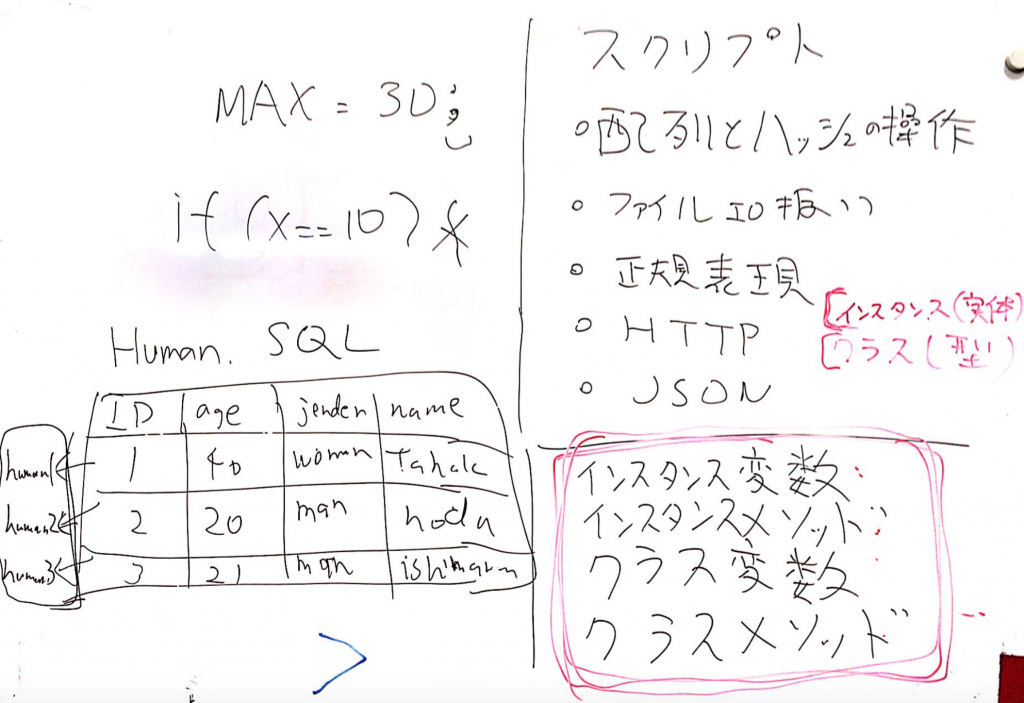 MAX = 30;
if (x==10) {
Human. SQL
ID age jender name
human1 1 40 woman
human2 2 20 man noda
human3 3 21 man ishimaru
スクリプト
○配列とハッシュの操作
○ファイルIO扱い
○正規表現
○HTTP
○JSON
インスタンス(実体)
クラス(型)
インスタンス変数
インスタンスメソッド
クラス変数
クラスメソッド